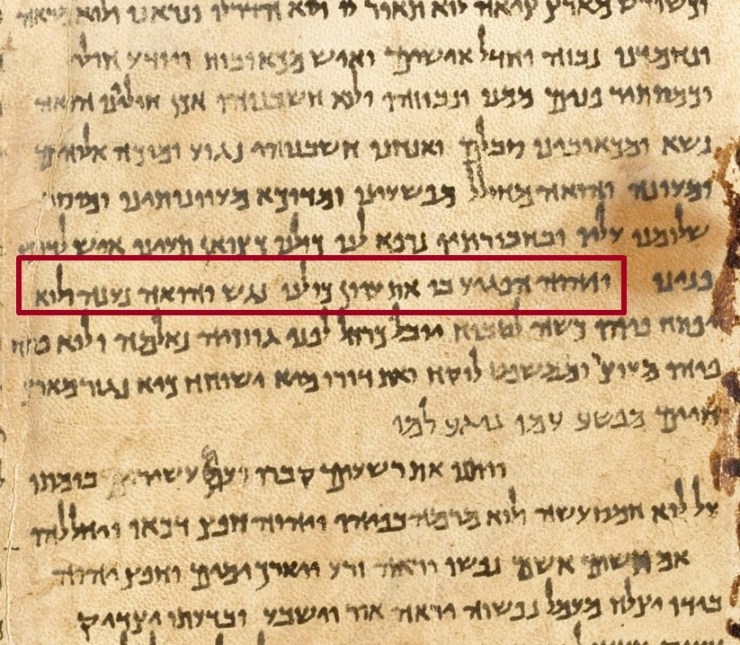 וכשורש מארץ ציאה לוא תאור לו ולוא הדר לו ונראנו ולוא מראה
ונחמדנו נבזה וחדל אישים ואיש מכאובות ויודע חולי
וכמסתיר פנים ממנו ונבוזהו ולוא חשבנוהו אכן חוליינו הואה
נשא ומכאובינו סבלם ואנחנו חשבנוהו נגוע ומוכה אלוהים
ומעונה והואה מחולל מפשעינו ומדוכא מעוונותינו ומוסר
שלומנו עליו ובחבורתיו נרפא לנו כולנו כצואן תעינו איש לדרכו
פנינו ויהוה הפגיע בו את עוון כולנו נגש והואה נענה ולוא
יפתח פיהו כשה לטבוח יובל כרחל לפני גוזזיה נאלמה ולוא פתח
פיהו מעוצר וממשפט לוקח ואת דורו מיא ישוחח כיא נגזר מארץ
חיים מפשע עמו נוגע למו
ויתנו את רשעים קברו ועם עשיר בומתו
על לוא חמס עשה ולוא מרמה בפיהו ויהוה חפץ דכאו ויחללהו
אם תשים אשם נפשו יראה זרע ויארך ימים וחפץ יהוה
בידו יצלח מעמל נפשוה יראה אור וישבע ובדעתו יצדיק